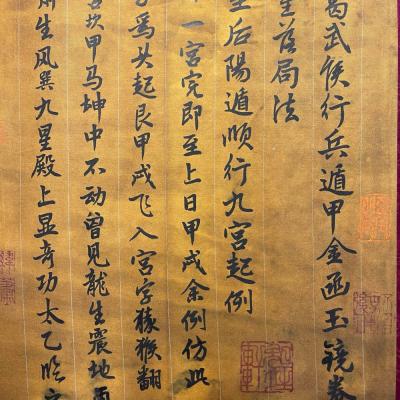 葛武侯行兵遁甲金函玉镜卷
生落局法
至后陽遁顺行九宫起例
一宫完即至上日甲戌余例仿此
为头起艮甲戌飞入宫字猿猴翻
坎甲马坤中不动曾见龍生震地
生风巽九星殿上显奇功太乙临